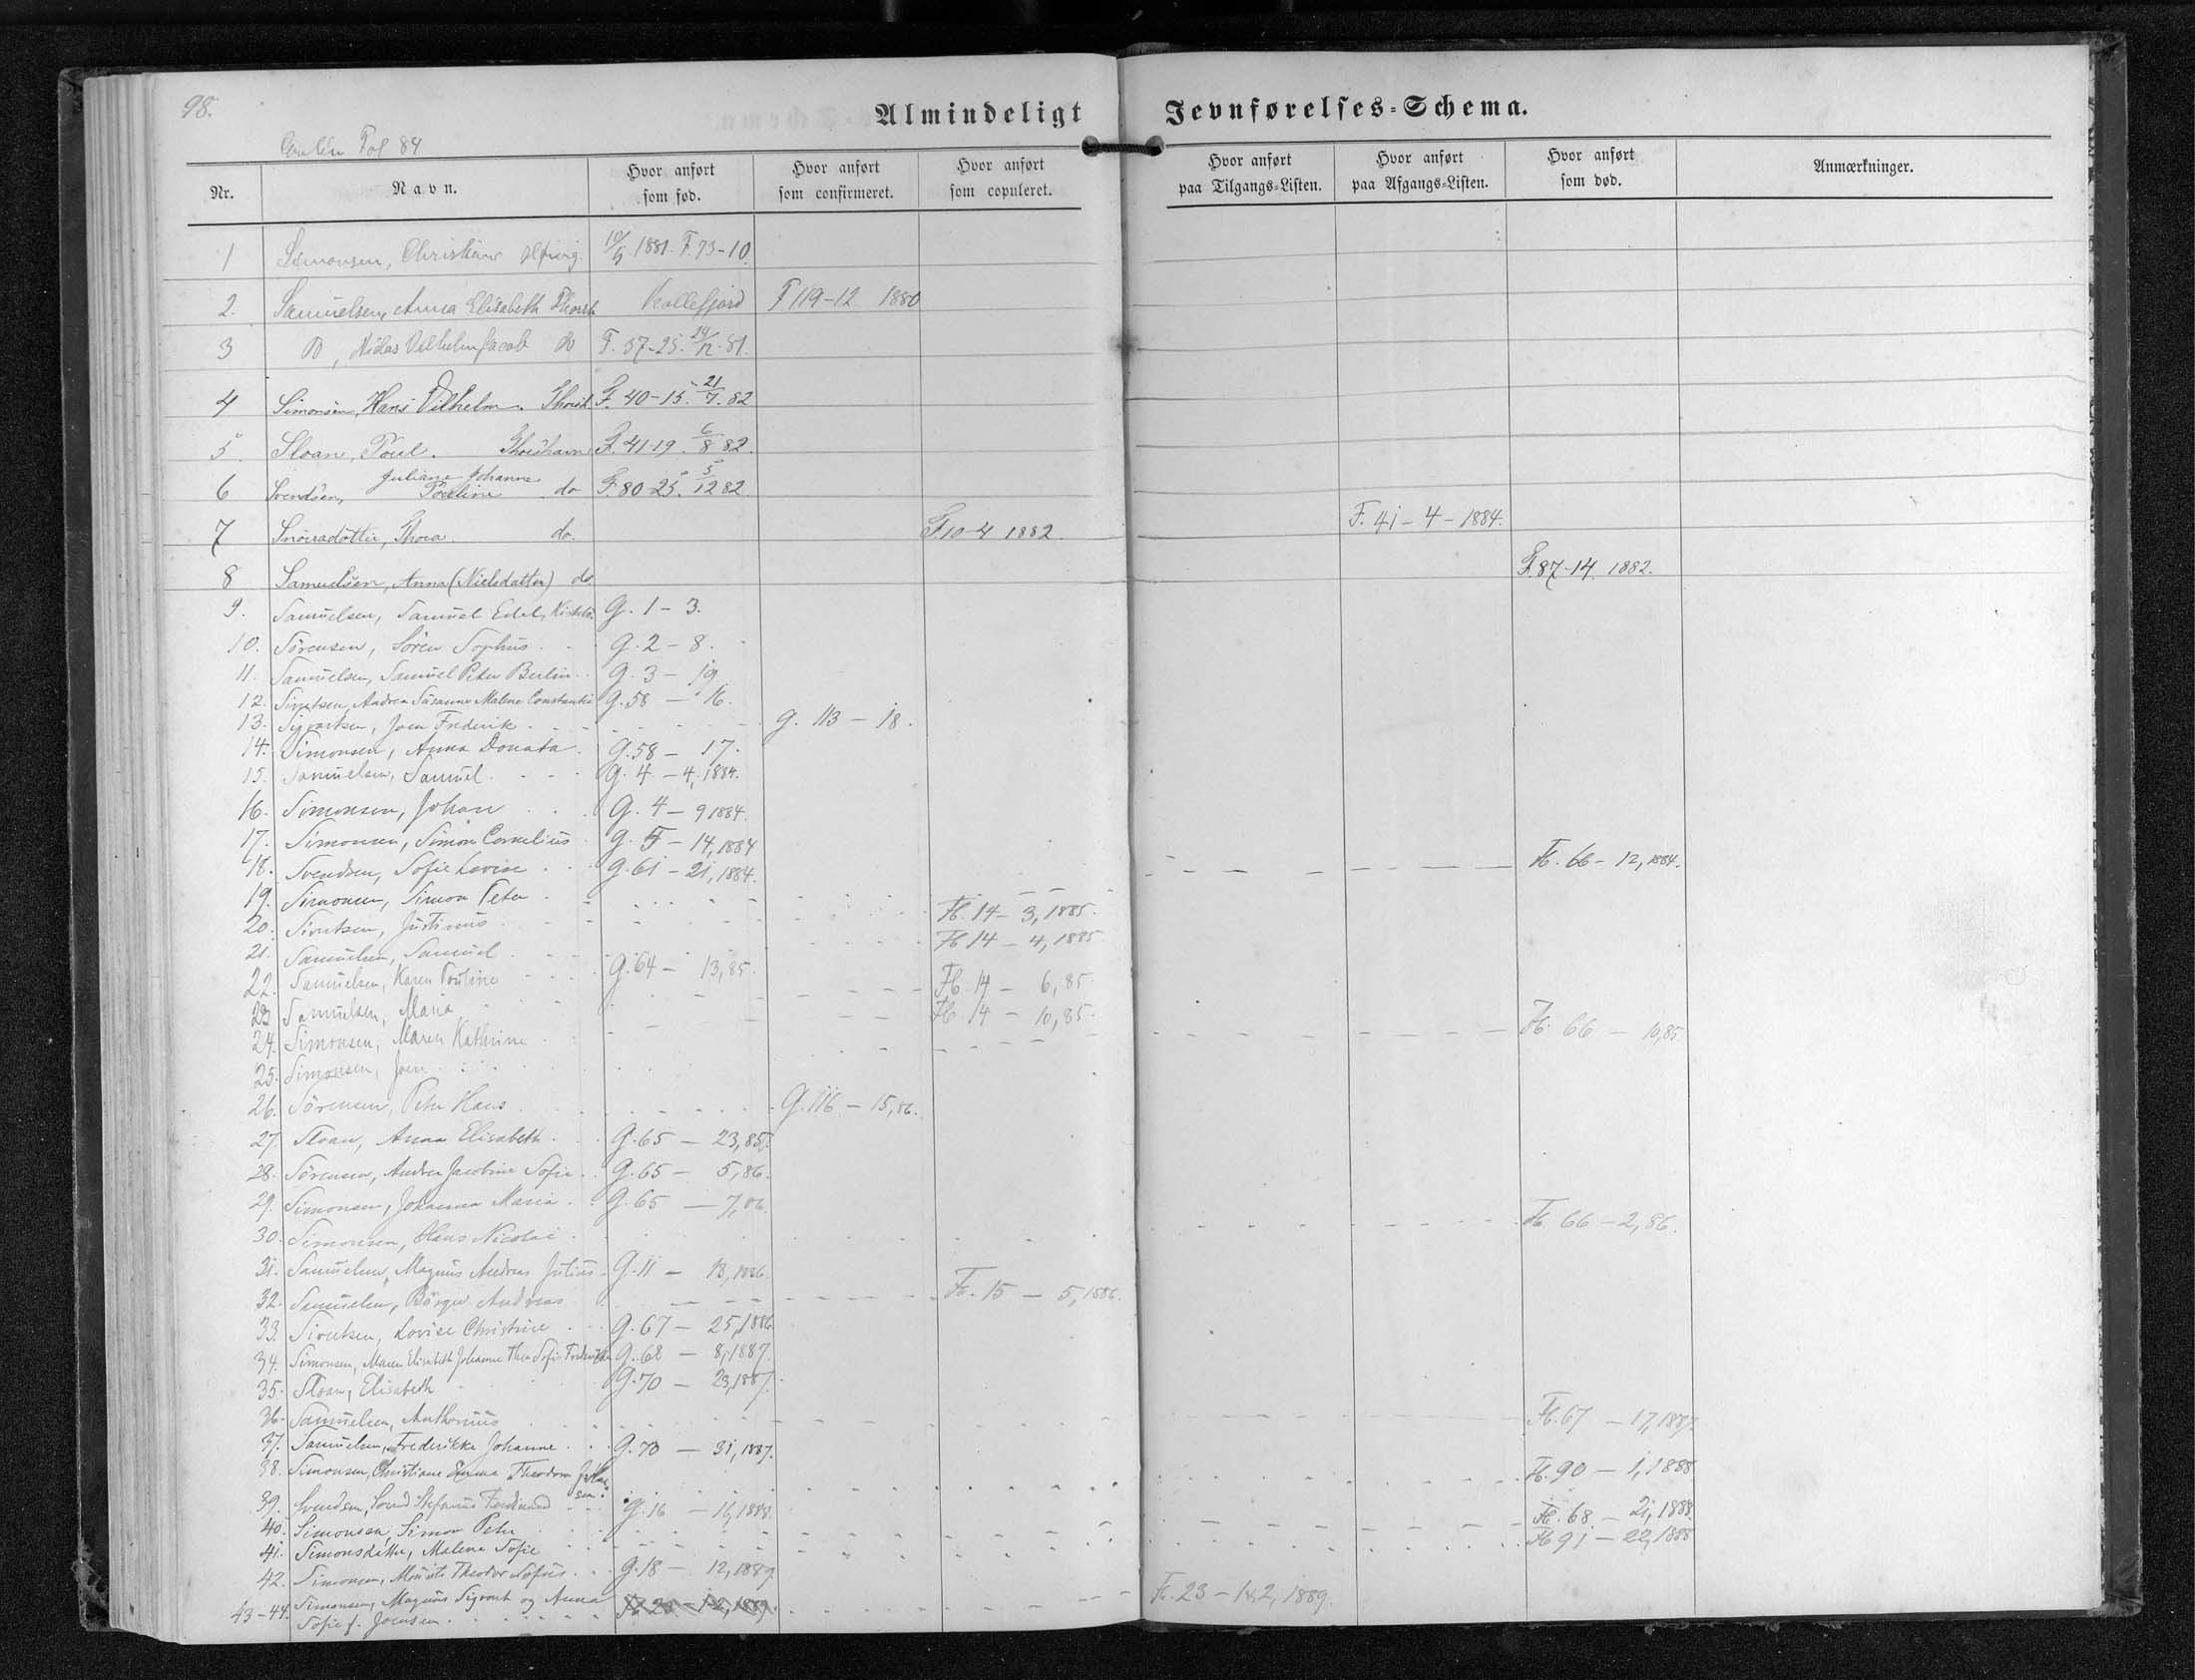 98.
Almindeligt Jevnførelses=Schema.
Fol 84
Nr. Navn. Hvor anført som fød. Hvor anført som confirmeret. Hvor anført som copuleret. Hvor anført paa Tilgangs=Listen. Hvor anført paa Afgangs=Listen. Hvor anført som død. Anmærkninger.
1 Simonsen, Christian 10/5 1881. F. 73-10.
2. Samuelsen, Anna Elisabeth Thorsh Kollefjord F 119-12 1880
3 Do, Niclas Vilhelm Jacob do F. 37-25. 24/12-81.
4 Simonsen, Hans Vilhelm. Thorsh. F. 40-15. 21/7. 82
5. Sloan, Poul. Thorshavn F. 41-19. 6/8 82.
6 Svendsen, Juliane Johanne Pouline do F. 80-25. 5/12 82.
7 Snorradottir, Thora. do. F 10-4 1882. F. 41-4-1884.
8 Samuelsen, Anna (Nielsdatter) do. F. 87-14. 1882.
9. Samuelsen, Samuel G. 1-3.
10. Sörensen, Sören Sophus. G. 2-8.
11. Samuelsen, Samuel Peter Berlin. G. 3-19
12. Sivertsen, Andrea Susanne Malene Constantia G. 58-16.
13. Sigvartsen, Joen Frederik. G. 113-18.
14. Simonsen, Anna Donata. G. 58-17.
15. Samuelsen, Samuel. G. 4-4, 1884.
16. Simonsen, Johan G. 4-9 1884.
17. Simonsen, Simon Cornelius G. 5-14, 1884
18. Svendsen, Sofie Lovise G. 61-21, 1884. Fb. 66-12, 1884.
19. Simonsen, Simon Peter Fb. 14-3, 1885.
20. Sivertsen, Justinus Fb 14-4, 1885
21. Samuelsen, Samuel
22. Samuelsen, Karen Pouline G. 64-13, 85. Fb. 14-6, 85.
23 Samuelsen, Maria Fb. 14-10, 85.
24. Simonsen, Maren Kathrine Fb. 66-10, 85.
25. Simonsen, Joen
26. Sörensen, Peter Hans G. 116-15, 86.
27. Sloan, Anna Elisabeth G. 65-23, 85.
28. Sörensen, Andrea Jacobine Sofie G. 65-5, 86.
29. Simonsen, Johanna Maria G. 65-7, 86.
30. Simonsen, Hans Nicolai Fb. 66-2, 86.
31. Samuelsen, Magnus Andreas Julius G. 11-13, 1886.
32. Samuelsen, Börge Andreas Fb. 15-5, 1886.
33. Sivertsen, Lovise Christine G. 67-25, 1886.
34. Simonsen, Maren Elisabeth Johanne Thea Sofie Frederikke G. 68-8, 1887.
35. Sloan, Elisabeth G. 70-23, 1887.
36. Samuelsen, Anthonius Fb. 67-17, 1887.
37. Samuelsen, Frederikke Johanne G. 70-31, 1887.
38. Simonsen, Christiane Emma Theodora Fb. 90-1, 1888
39. Svendsen, Stefanus Ferdinand G. 16-16, 1888.
40. Simonsen, Simon Peter Fb. 68-21, 1888.
41. Simonsdatter, Malene Sofie Fb 91-22, 1888
42. Simonsen, Theodor Sofus G. 18-12, 1889.
43-44. Simonsen, Magnus Sigvart og Anna Fb. 23-1-2, 1889. Fb. 23-1&2, 1889.
Sofie f. Joensen